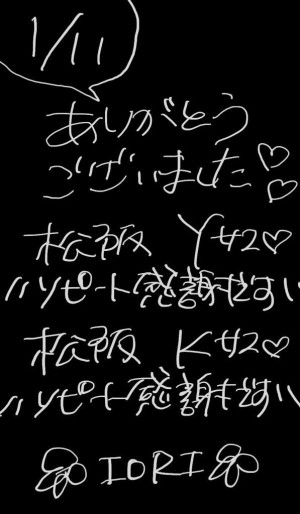 1/11
ありがとう
ございました♡♡
松阪 Yサン♡
リピート感謝だすい
松阪 Kサン♡
リピート感謝だすい
IORI